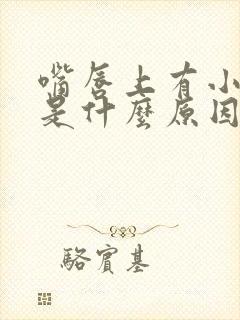 嘴唇上有小
是什麼原因
駱賓基